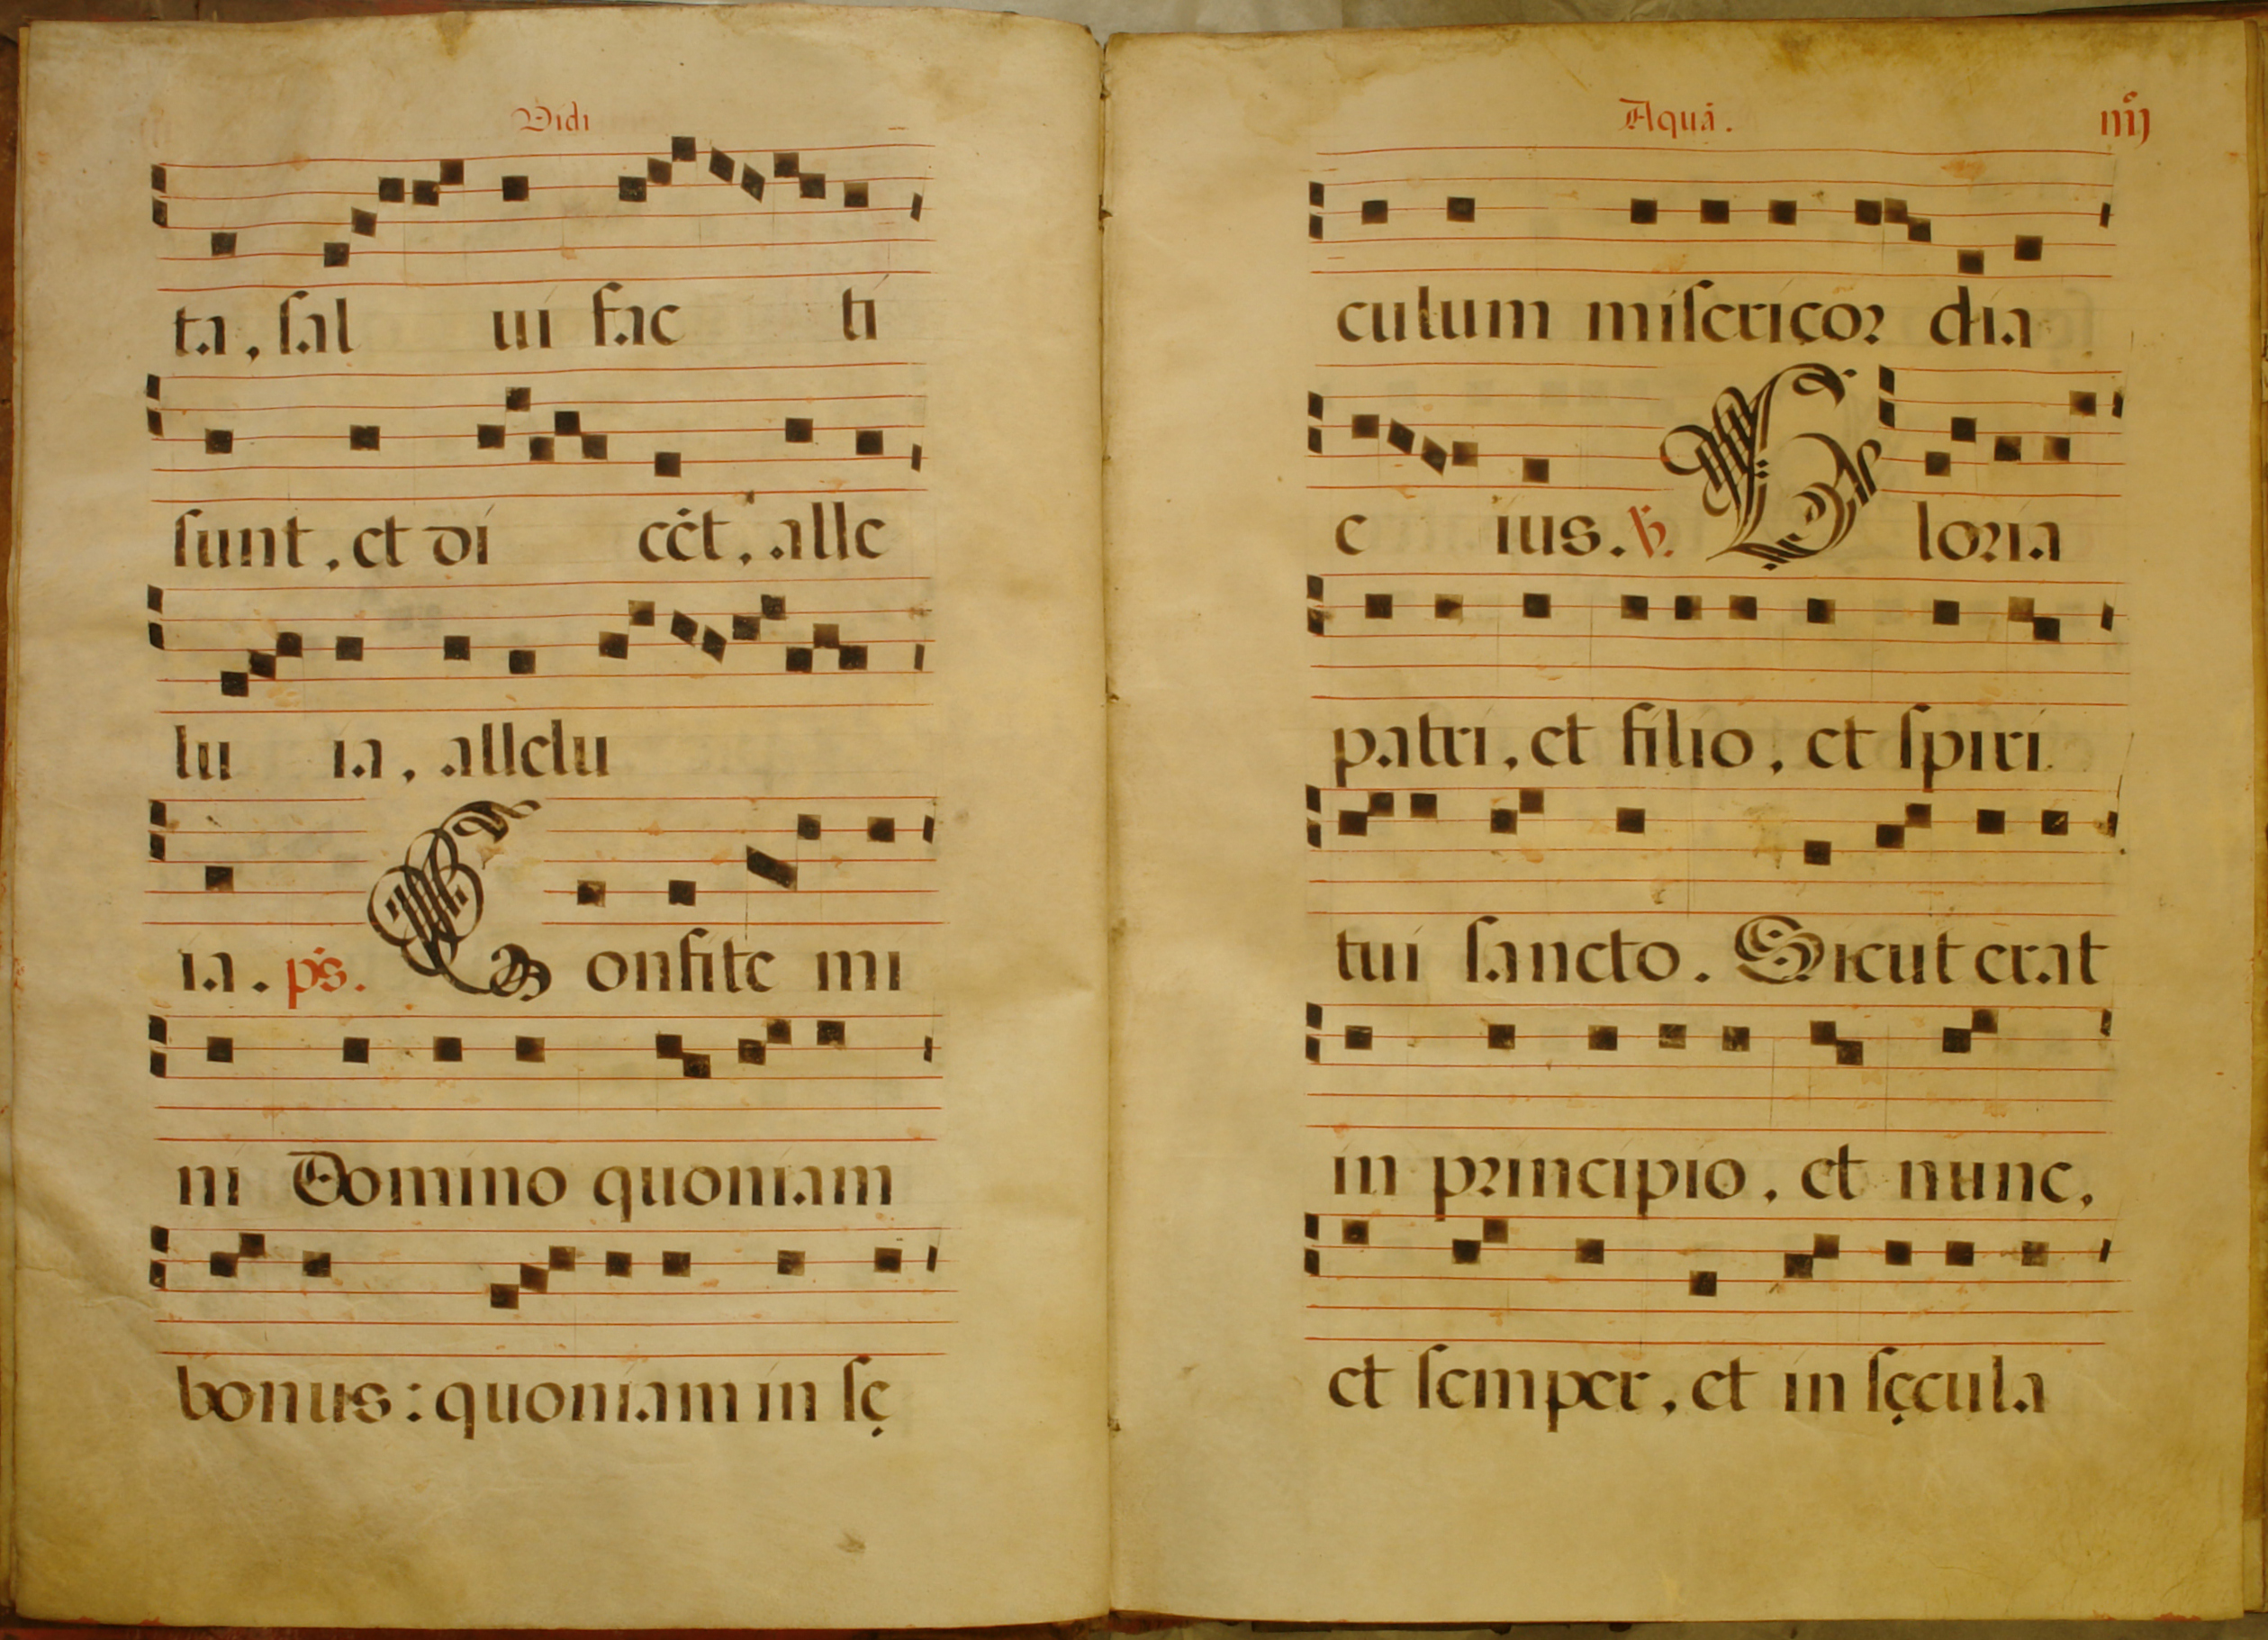 Vidi
ta, sal ui fac ti
sunt, et di cēt, alle
lu ia, allelu
ia. ps. Confite mi
ni Domino quoniam
bonus: quoniam in sę
Aquā. iiij
culum misericor dia
e ius. ℣. Gloria
patri, et filio, et spiri
tui sancto. Sicut erat
in principio, et nunc,
et semper, et in sęcula